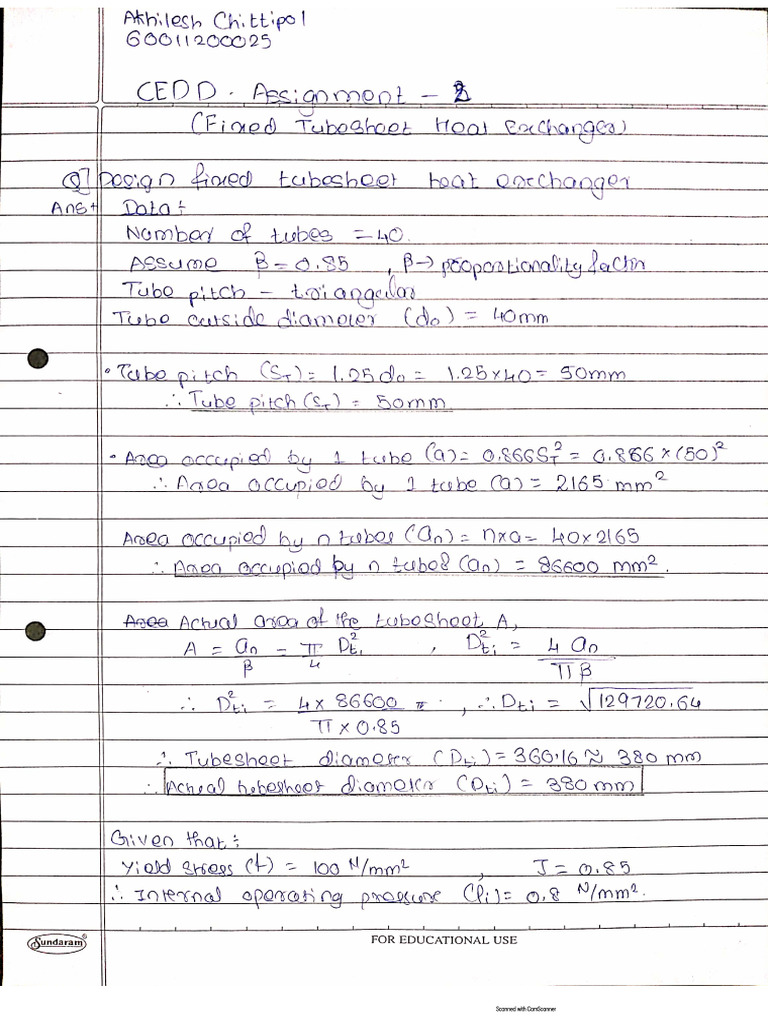 Akhilesh Chittipol
60011200025
CEDD. Assignment - 2
(Fixed Tubesheet Heat Exchanger)
Q] Design fixed tubesheet heat exchanger
Ans→ Data:
Number of tubes = 40.
Assume β = 0.85 , β → proportionality factor
Tube pitch - triangular
Tube outside diameter (do) = 40mm
• Tube pitch (ST) = 1.25do = 1.25×40 = 50mm
∴ Tube pitch (ST) = 50mm
• Area occupied by 1 tube (a) = 0.866ST² = 0.866 × (50)²
∴ Area occupied by 1 tube (a) = 2165 mm²
Area occupied by n tubes (an) = n×a = 40×2165
∴ Area occupied by n tubes (an) = 86600 mm².
Area Actual area of the tubesheet A,
A = an/β = π/4 Dti² , Dti² = 4 an/πβ
∴ Dti² = 4 × 86600/π × 0.85 , ∴ Dti = √129720.64
∴ Tubesheet diameter (Dti) = 360.16 ≈ 380 mm
∴ Actual tubesheet diameter (Dti) = 380 mm
Given that:
Yield stress (f) = 100 N/mm² , J = 0.85
∴ Internal operating pressure (Pi) = 0.8 N/mm².
Sundaram®
FOR EDUCATIONAL USE
Scanned with CamScanner